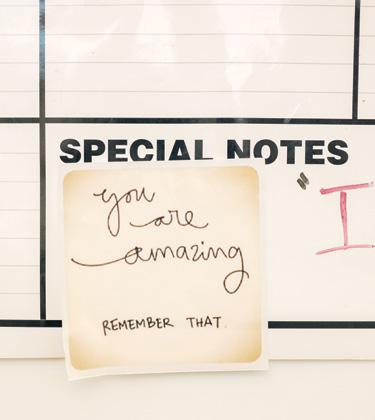 SPECIAL NOTES
" I
you
are
amazing
REMEMBER THAT.